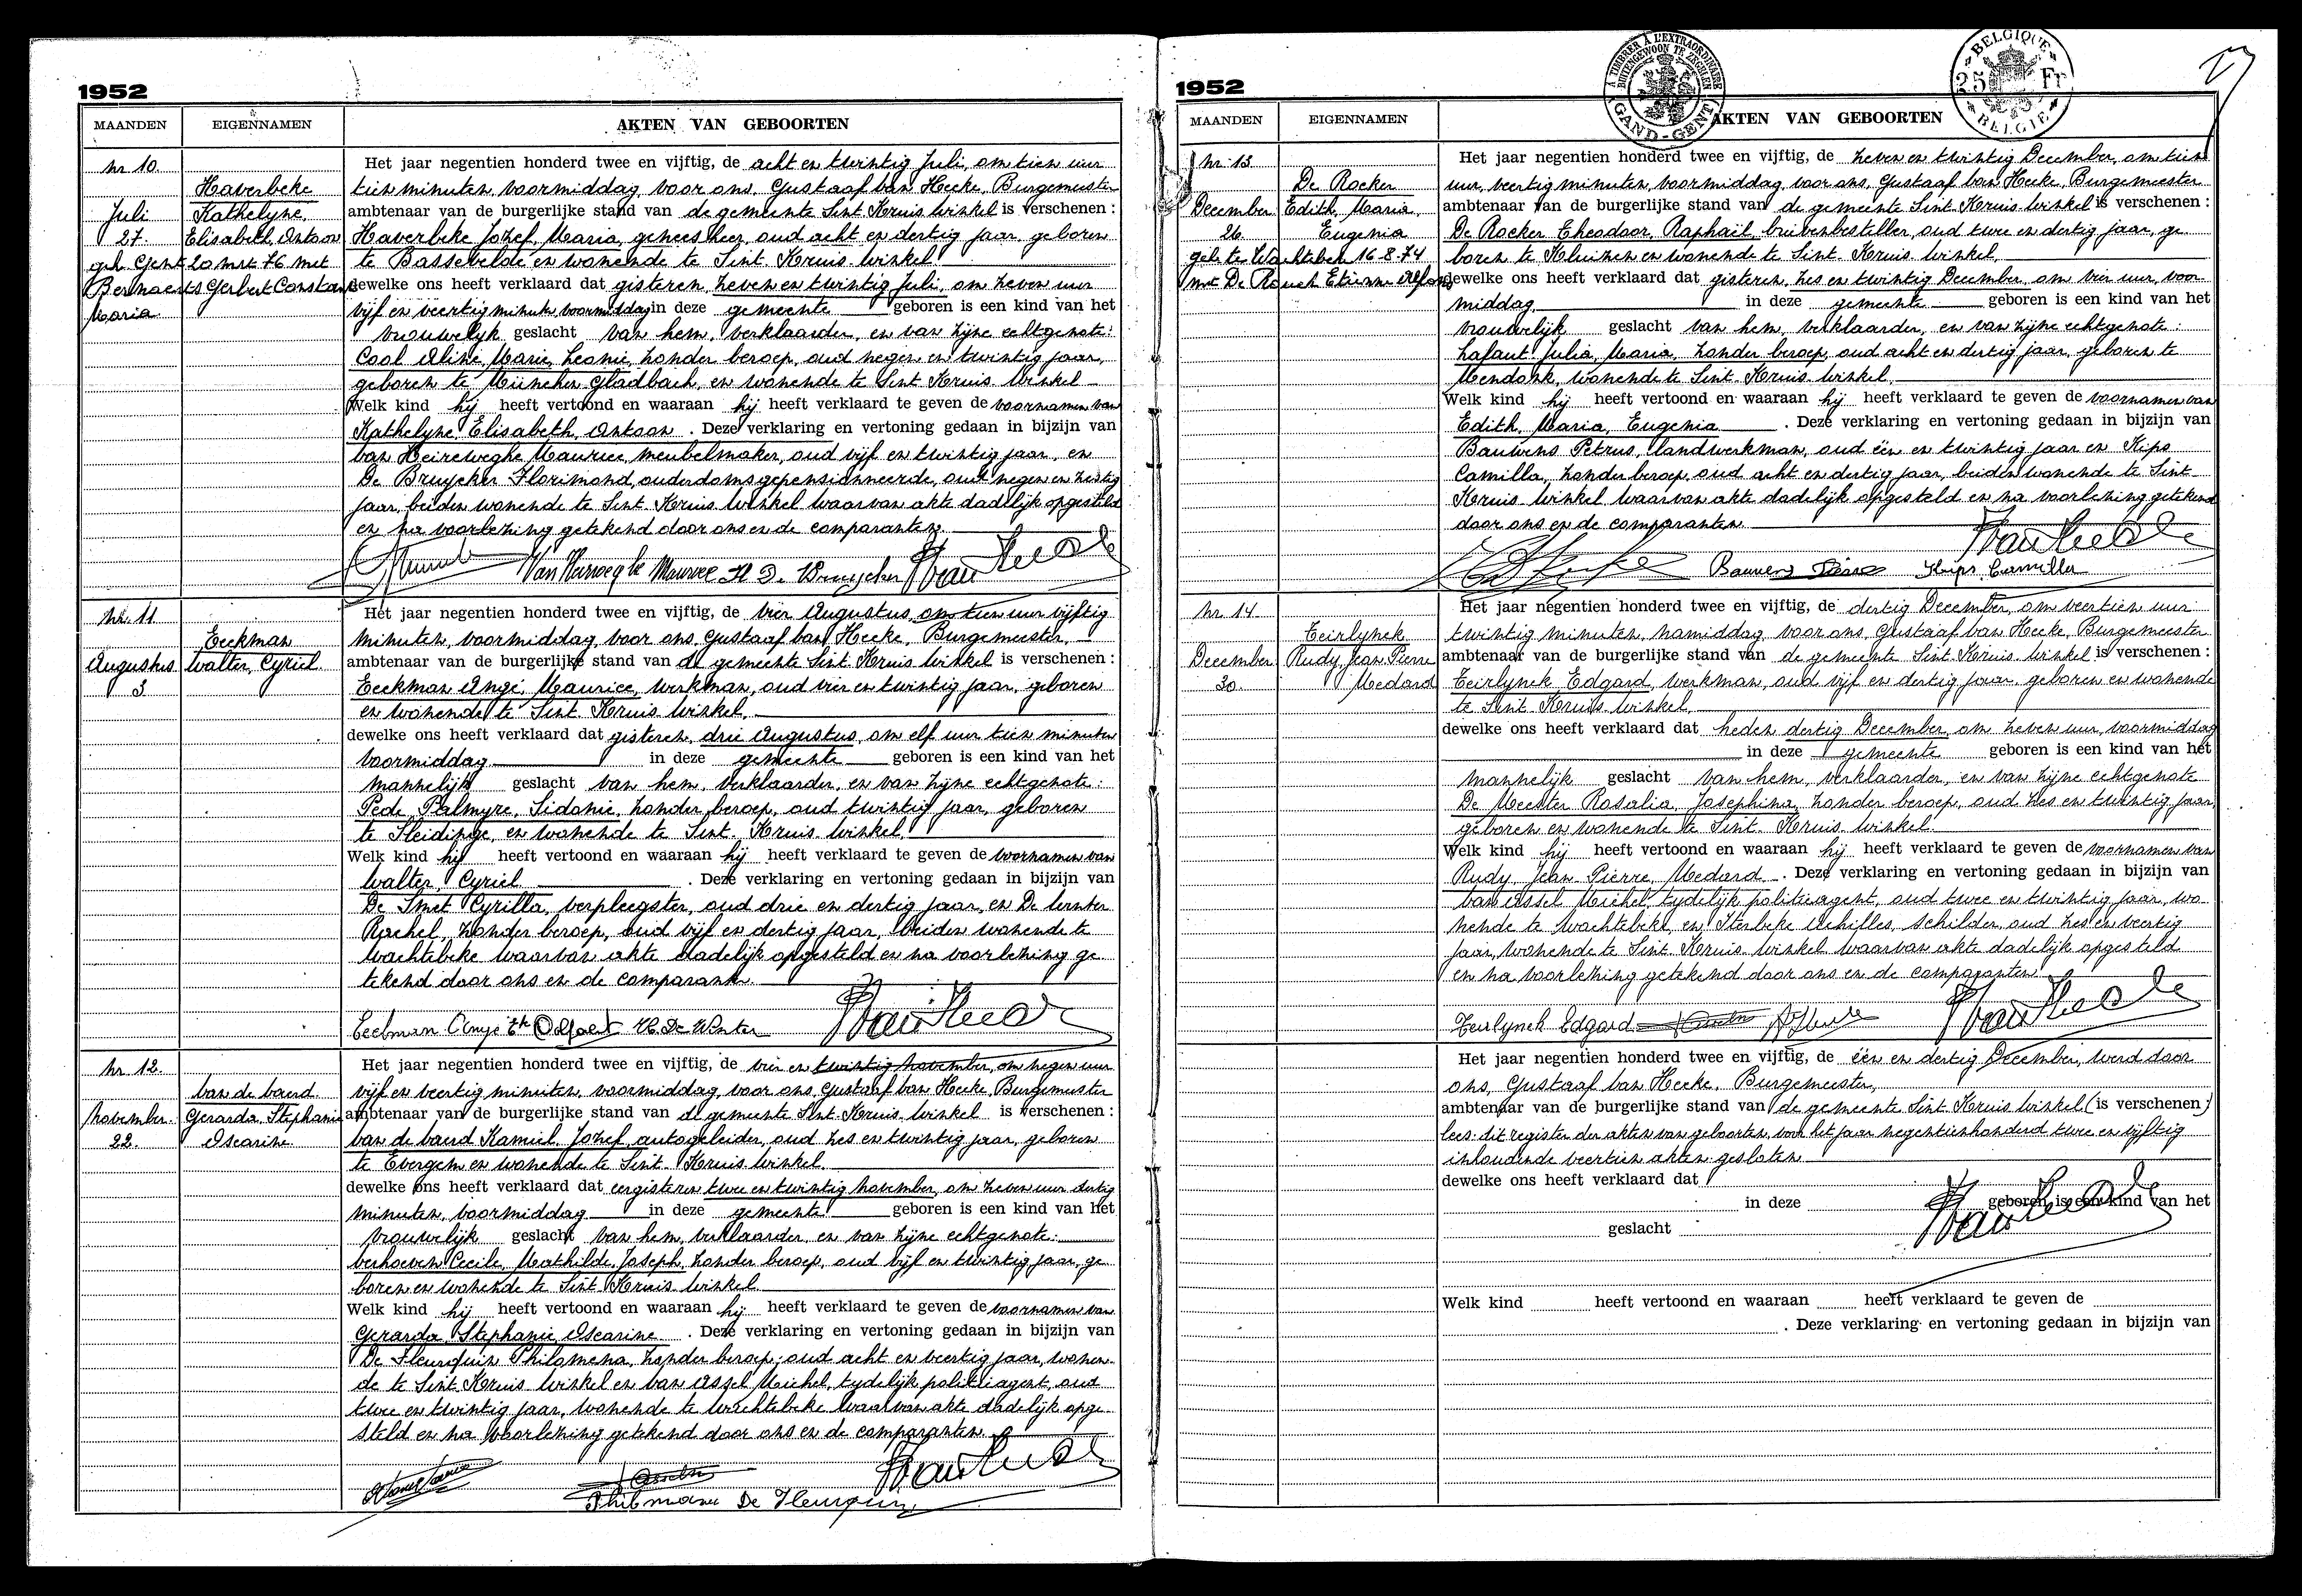 1952
MAANDEN EIGENNAMEN AKTEN VAN GEBOORTEN
nr 10.
Haverbeke
Juli Kathelyne,
27. Elisabeth, Antoon
geh. Gent 20 mrt 76 met
Bernaerts Gerbert Constant
Maria
Het jaar negentien honderd twee en vijftig, de acht en twintig Juli, om tien uur
tien minuten, voormiddag, voor ons, Gustaaf Van Hecke, Burgemeester
ambtenaar van de burgerlijke stand van de gemeente Sint Kruis Winkel is verschenen :
Haverbeke Jozef, Maria, geneesheer, oud acht en dertig jaar, geboren
te Bassevelde en wonende te Sint Kruis Winkel
dewelke ons heeft verklaard dat gisteren, zeven en twintig Juli, om zeven uur
vijf en veertig minuten voormiddag in deze gemeente geboren is een kind van het
vrouwelijk geslacht van hem, verklaarder, en van zijne echtgenote:
Cool Aline, Marie, Leonie, zonder beroep, oud negen en twintig jaar,
geboren te München Gladbach, en wonende te Sint Kruis Winkel
Welk kind hij heeft vertoond en waaraan hij heeft verklaard te geven de voornamen van
Kathelyne, Elisabeth, Antoon . Deze verklaring en vertoning gedaan in bijzijn van
Van Heireweghe Maurice, meubelmaker, oud vijf en twintig jaar, en
De Bruycker Florimond, ouderdomsgepensionneerde, oud negen en zestig
jaar, beiden wonende te Sint Kruis Winkel waarvan akte dadelijk opgesteld
en na voorlezing getekend door ons en de comparanten.
Van Heirweghe Maurice Fl De Bruycker Van Hecke
nr. 11
Eeckman
Augustus Walter, Cyriel
3
Het jaar negentien honderd twee en vijftig, de vier Augustus, om tien uur vijftig
minuten, voormiddag, voor ons, Gustaaf Van Hecke, Burgemeester,
ambtenaar van de burgerlijke stand van de gemeente Sint Kruis Winkel is verschenen :
Eeckman Angé, Maurice, werkman, oud vier en twintig jaar, geboren
en wonende te Sint Kruis Winkel,
dewelke ons heeft verklaard dat gisteren, drie Augustus, om elf uur tien minuten
voormiddag in deze gemeente geboren is een kind van het
mannelijk geslacht van hem, verklaarder, en van zijne echtgenote:
Pede Palmyre, Sidonie, zonder beroep, oud twintig jaar, geboren
te Sleidinge, en wonende te Sint Kruis Winkel.
Welk kind hij heeft vertoond en waaraan hij heeft verklaard te geven de voornamen van
Walter, Cyriel . Deze verklaring en vertoning gedaan in bijzijn van
De Smet Cyrilla, verpleegster, oud drie en dertig jaar, en De Winter
Rachel, zonder beroep, oud vijf en dertig jaar, beiden wonende te
Wachtebeke waarvan akte dadelijk opgesteld en na voorlezing ge
tekend door ons en de comparanten.
Eeckman Angé De Winter Van Hecke
nr. 12.
Van de Vaerd
November Gerarda, Stephanie
22. Oscarine
Het jaar negentien honderd twee en vijftig, de vier en twintig November, om negen uur
vijf en veertig minuten, voormiddag, voor ons, Gustaaf Van Hecke, Burgemeester
ambtenaar van de burgerlijke stand van de gemeente Sint Kruis Winkel is verschenen :
Kamiel, Jozef, autogeleider, oud zes en twintig jaar, geboren
te Evergem en wonende te Sint Kruis Winkel.
dewelke ons heeft verklaard dat eergisteren twee en twintig November, om zeven uur dertig
minuten, voormiddag in deze gemeente geboren is een kind van het
vrouwelijk geslacht van hem, verklaarder, en van zijne echtgenote:
Verhoeven Cecile, Mathilde, Joseph, zonder beroep, oud vijf en twintig jaar, ge
boren en wonende te Sint Kruis Winkel
Welk kind hij heeft vertoond en waaraan hij heeft verklaard te geven de voornamen van
Gerarda, Stephanie, Oscarine . Deze verklaring en vertoning gedaan in bijzijn van
De Fleurquin Philomena, zonder beroep, oud acht en veertig jaar, wonen-
de te Sint Kruis Winkel en Van Assel Michel, tydelijk politieagent, oud
twee en twintig jaar, wonende te Wachtebeke waarvan akte dadelijk opge-
steld en na voorlezing getekend door ons en de comparanten
Van Hecke
De Fleurquin
1952
TIMBRER A L'EXTRAORDINAIRE
BUITENGEWOON TE ZEGELEN
GAND-GENT
BELGIQUE
25 Fr
BELGIE
MAANDEN EIGENNAMEN AKTEN VAN GEBOORTEN
nr. 13.
De Roeker
December Edith, Maria,
26. Eugenia
geh. te Wachtebeke 16-8-74
met De Etienne Alfons
Het jaar negentien honderd twee en vijftig, de zeven en twintig December, om tien
uur, veertig minuten, voormiddag, voor ons, Gustaaf Van Hecke, Burgemeester
ambtenaar van de burgerlijke stand van de gemeente Sint Kruis Winkel is verschenen :
De Roeker Theodoor, Raphaïl, brievenbesteller, oud twee en dertig jaar, ge
boren te Kluizen en wonende te Sint Kruis Winkel,
dewelke ons heeft verklaard dat gisteren, zes en twintig December, om vier uur, voor
middag in deze gemeente geboren is een kind van het
vrouwelijk geslacht van hem, verklaarder, en van zijne echtgenote:
Lafaut Julia, Maria, zonder beroep, oud acht en dertig jaar, geboren te
Mendonk, wonende te Sint Kruis Winkel.
Welk kind hij heeft vertoond en waaraan hij heeft verklaard te geven de voornamen van
Edith, Maria, Eugenia . Deze verklaring en vertoning gedaan in bijzijn van
Bauwens Petrus, landwerkman, oud één en twintig jaar en Kips
Camilla, zonder beroep, oud acht en dertig jaar, beiden wonende te Sint
Kruis Winkel waarvan akte dadelijk opgesteld en na voorlezing getekend
door ons en de comparanten
Van Hecke
Bauwens Kips Camilla
nr. 14
Teirlynck
December Rudy, Jean Pierre
30. Medard
Het jaar negentien honderd twee en vijftig, de dertig December, om veertien uur
twintig minuten, namiddag, voor ons, Gustaaf Van Hecke, Burgemeester
ambtenaar van de burgerlijke stand van de gemeente Sint Kruis Winkel is verschenen :
Teirlynck Edgard, werkman, oud vijf en dertig jaar, geboren en wonende
te Sint Kruis Winkel
dewelke ons heeft verklaard dat heden dertig December, om zeven uur, voormiddag
in deze gemeente geboren is een kind van het
mannelijk geslacht van hem, verklaarder, en van zijne echtgenote
De Meester Rosalia, Josephina, zonder beroep, oud zes en twintig jaar,
geboren en wonende te Sint Kruis Winkel.
Welk kind hij heeft vertoond en waaraan hij heeft verklaard te geven de voornamen van
Rudy, Jean Pierre, Medard . Deze verklaring en vertoning gedaan in bijzijn van
Van Assel Michel, tydelijk politieagent, oud twee en twintig jaar, wo
nende te Wachtebeke, en Sterbeke Achilles, schilder, oud zes en veertig
jaar, wonende te Sint Kruis Winkel waarvan akte dadelijk opgesteld
en na voorlezing getekend door ons en de comparanten
Teirlynck Edgard Van Hecke
Het jaar negentien honderd twee en vijftig, de één en dertig December, werd door
ons, Gustaaf Van Hecke, Burgemeester,
ambtenaar van de burgerlijke stand van de gemeente Sint Kruis Winkel (is verschenen :)
lees: dit register der akten van geboorten, voor het jaar negentienhonderd twee en vijftig
inhoudende veertien akten gesloten
dewelke ons heeft verklaard dat
in deze geboren is een kind van het
geslacht
Van Hecke
Welk kind heeft vertoond en waaraan heeft verklaard te geven de
. Deze verklaring en vertoning gedaan in bijzijn van